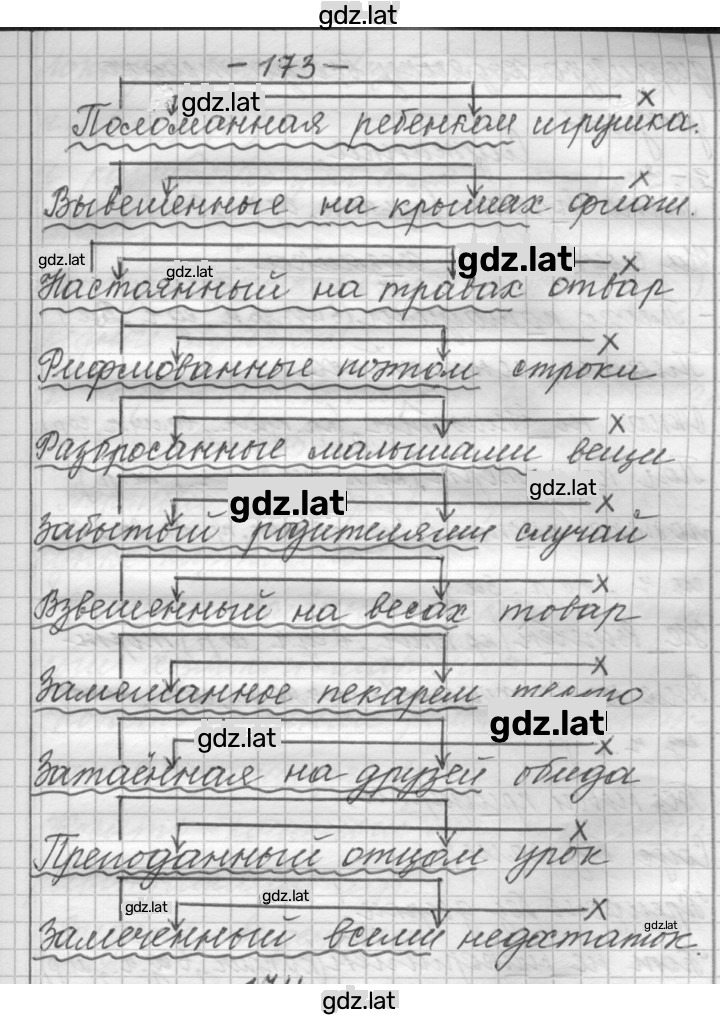 gdz.lat
-173-
gdz.lat
Поломанная ребенком игрушка.
Вывешенные на крышах флаги.
gdz.lat gdz.lat gdz.lat
Настоянный на травах отвар
Рифмованные поэтом строки
Разбросанные малышами вещи
gdz.lat gdz.lat
Забытый родителями случай
Взвешенный на весах товар
Замешанное пекарем тесто
gdz.lat gdz.lat
Затаённая на друзей обида
Преподанный отцом урок
gdz.lat gdz.lat gdz.lat
Замеченный всеми недостаток.
gdz.lat